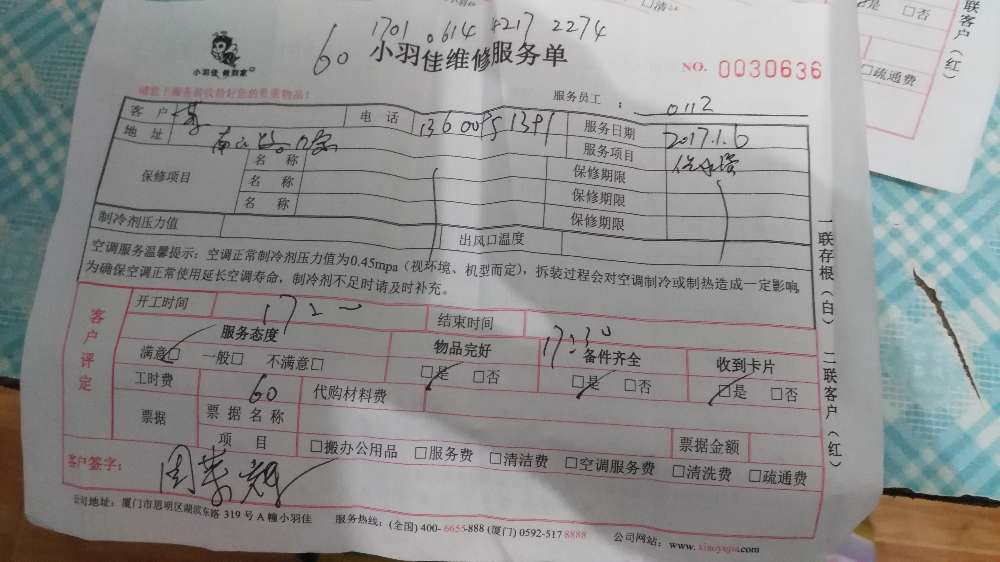 1701 0614 4217 2274
60
小羽佳维修服务单
小羽佳 做到家
NO. 0030636
服务员工 : 0112
客户 电话 服务日期 2017.1.6
地址 服务项目
保修项目 名称 保修期限
名称 保修期限
名称 保修期限
制冷剂压力值 出风口温度
空调服务温馨提示:空调正常制冷剂压力值为0.45mpa(视环境、机型而定),拆装过程会对空调制冷或制热造成一定影响,
为确保空调正常使用延长空调寿命,制冷剂不足时请及时补充。
客户评定
开工时间 结束时间 17:30
服务态度 物品完好 备件齐全 收到卡片
满意□ 一般□ 不满意□ □是 □否 □是 □否 □是 □否
工时费 60 代购材料费
票据 票据名称 票据金额
项目 □搬办公用品 □服务费 □清洁费 □空调服务费 □清洗费 □疏通费
客户签字:
公司地址:厦门市思明区湖滨东路 319 号 A 幢小羽佳 服务热线:(全国) 400-6655-888 (厦门) 0592-517 8888 公司网站:www.xiaoyujia.com
一联存根(白) 二联客户(红)
联客户(红)
□否
□疏通费